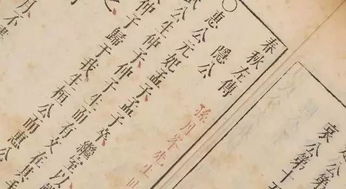 哀公第十
春秋左傳
隱公
孫月峯先生
惠公元妃孟子孟子卒繼室以
武公生仲子仲子生而有文在其手
仲子歸于我生桓公而惠公
之
月不書